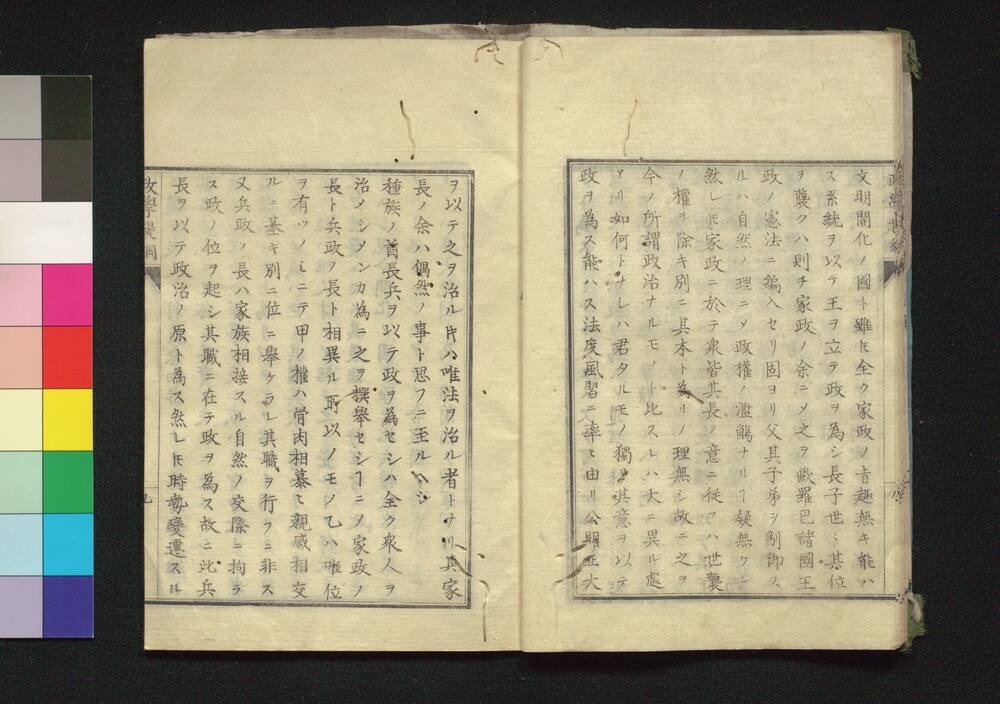 文明開化ノ國ト雖𪜈全ク家政ノ旨趣無キ能ハ
ス系統ヲ以テ王ヲ立テ政ヲ為シ長子世〻其位
ヲ襲クハ則チ家政ノ余ニ〆之ヲ歐羅巴諸國王
政ノ憲法ニ編入セリ固ヨリ父其子弟ヲ制御ス
ルハ自然ノ理ニ〆政權ノ濫觴ナリヿ疑無ケレ
然レ𪜈家政ニ於テ衆皆其長ノ意ニ從フハ世襲
ノ權ヲ除キ別ニ其本ト為ルノ理無シ故ニ之ヲ
今ノ所謂政治ナルモノト比スレハ大ニ異ル處
アリ如何トナレハ君タルモノ獨リ其意ヲ以テ
政ヲ為ス能ハス法度風習ニ率ヒ由リ公明正大
ヲ以テ之ヲ治ル𪜈ハ唯法ヲ治ル者トナリ其家
長ノ余ハ偶然ノ事ト思フニ至ルヘシ
種族ノ酋長兵ヲ以テ政ヲ為セシハ全ク衆人ヲ
治メシメンカ為ニ之ヲ撰擧セシヿニ〆家政ノ
長ト兵政ノ長ト相異ル所以ノモノ乙ハ唯位
ヲ有ツノミニテ甲ノ權ハ骨肉相慕ヒ親戚相交
ルニ基キ別ニ位ニ擧ケラレ其職ヲ行フニ非ス
又兵政ノ長ハ家族相接スル自然ノ交際ニ拘ラ
ス政ノ位ヲ起シ其職ニ在テ政ヲ為ス故ニ此兵
長ヲ以テ政治ノ原ト為ス然レ𪜈時勢變遷スル
政學提綱
九